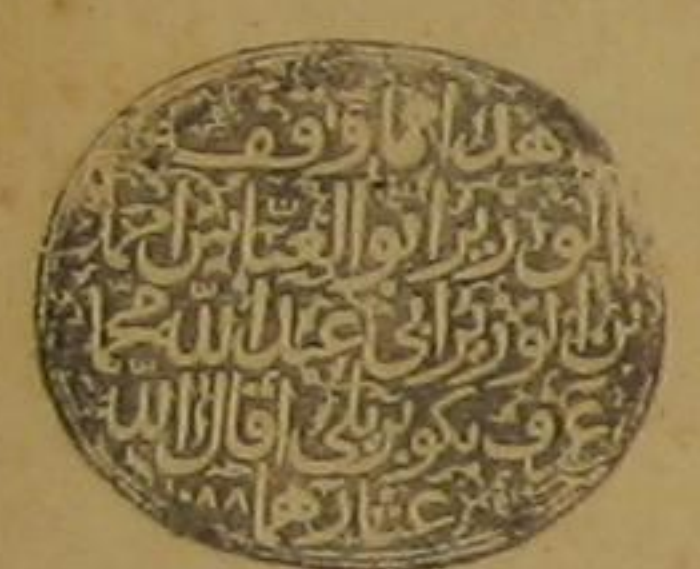 هذا مما وقف
الوزير ابو العباس احمد
بن الوزير ابي عبد الله محمد
عرف بكوبريلي اقال الله
عثارهما ١٠٨٨